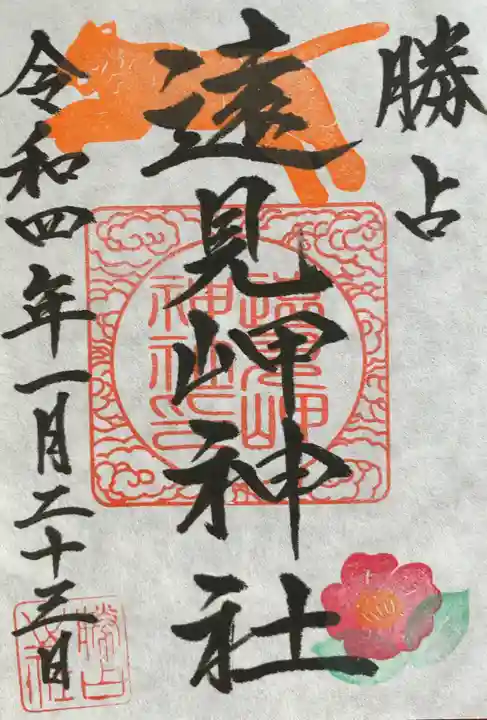 勝占
遠見岬神社
令和四年一月二十三日
遠見岬
神社印